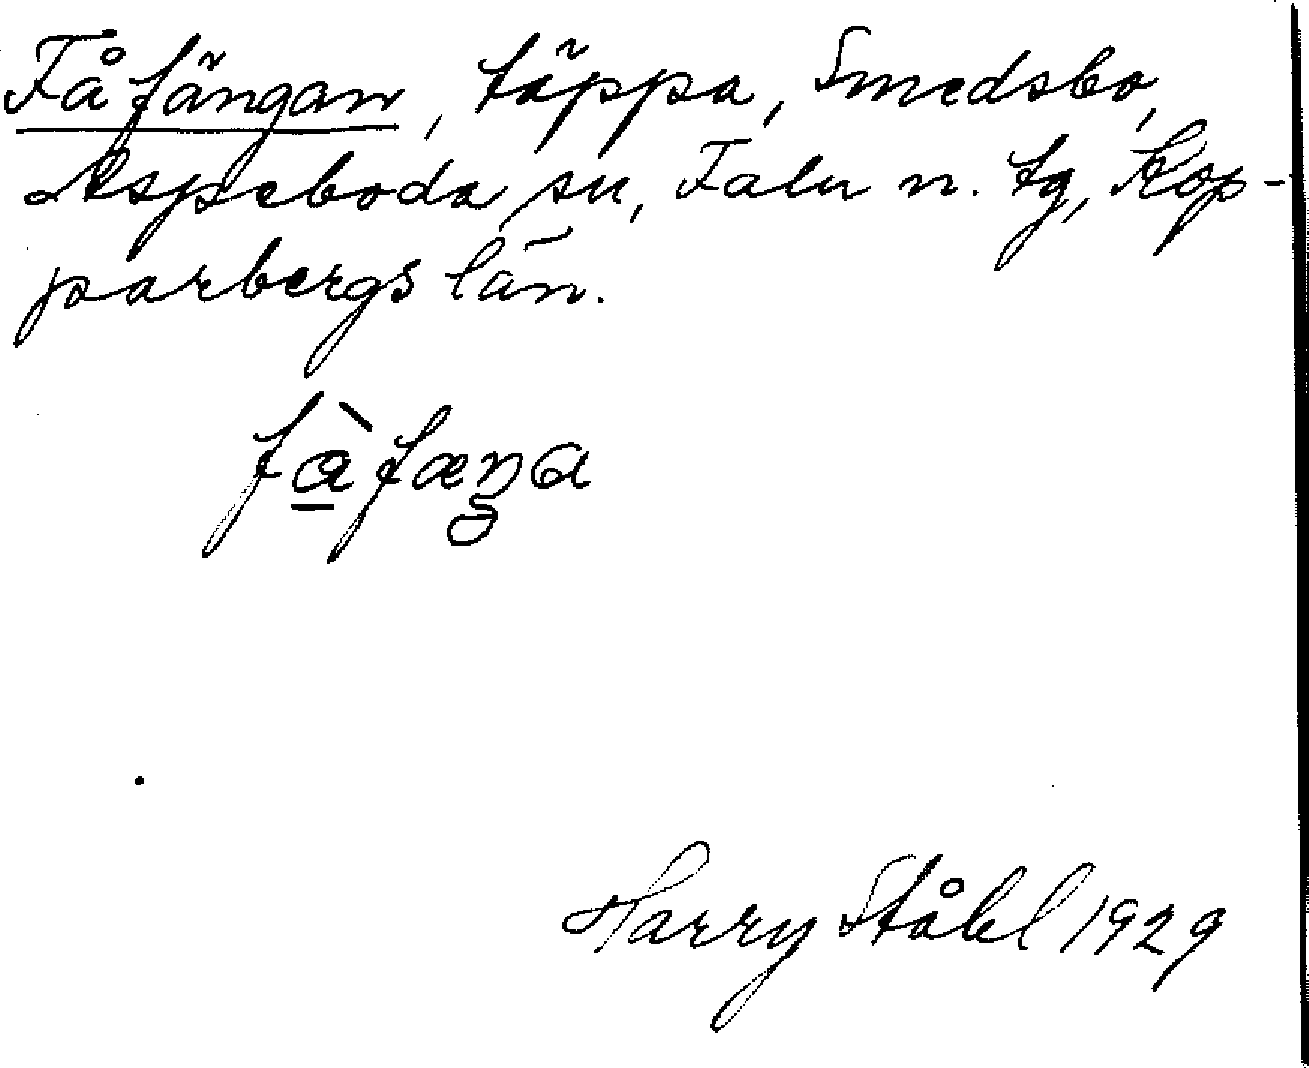 Fåfängan, täppa, Smedsbo,
Aspeboda sn, Falu n. tg, Kop-
parbergs län.
fàfæŋa
Harry Ståhl 1929